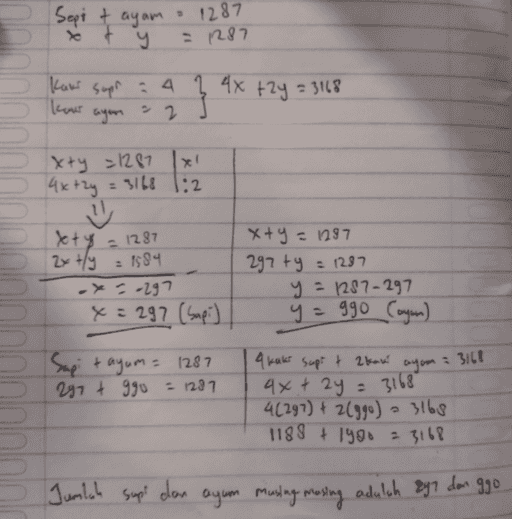 Sapi + ayam = 1287
x + y = 1287
kaki sapi = 4 } 4x + 2y = 3168
kaki ayam = 2
x+y = 1287 | x1
4x+2y = 3168 | :2
⇓
x+y = 1287
2x+y = 1584 -
-x = -297
x = 297 (Sapi)
x+y = 1287
297 + y = 1287
y = 1287-297
y = 990 (ayam)
Sapi + ayam = 1287
297 + 990 = 1287
4 kaki sapi + 2 kaki ayam = 3168
4x + 2y = 3168
4(297) + 2(990) = 3168
1188 + 1980 = 3168
Jumlah sapi dan ayam masing-masing adalah 297 dan 990